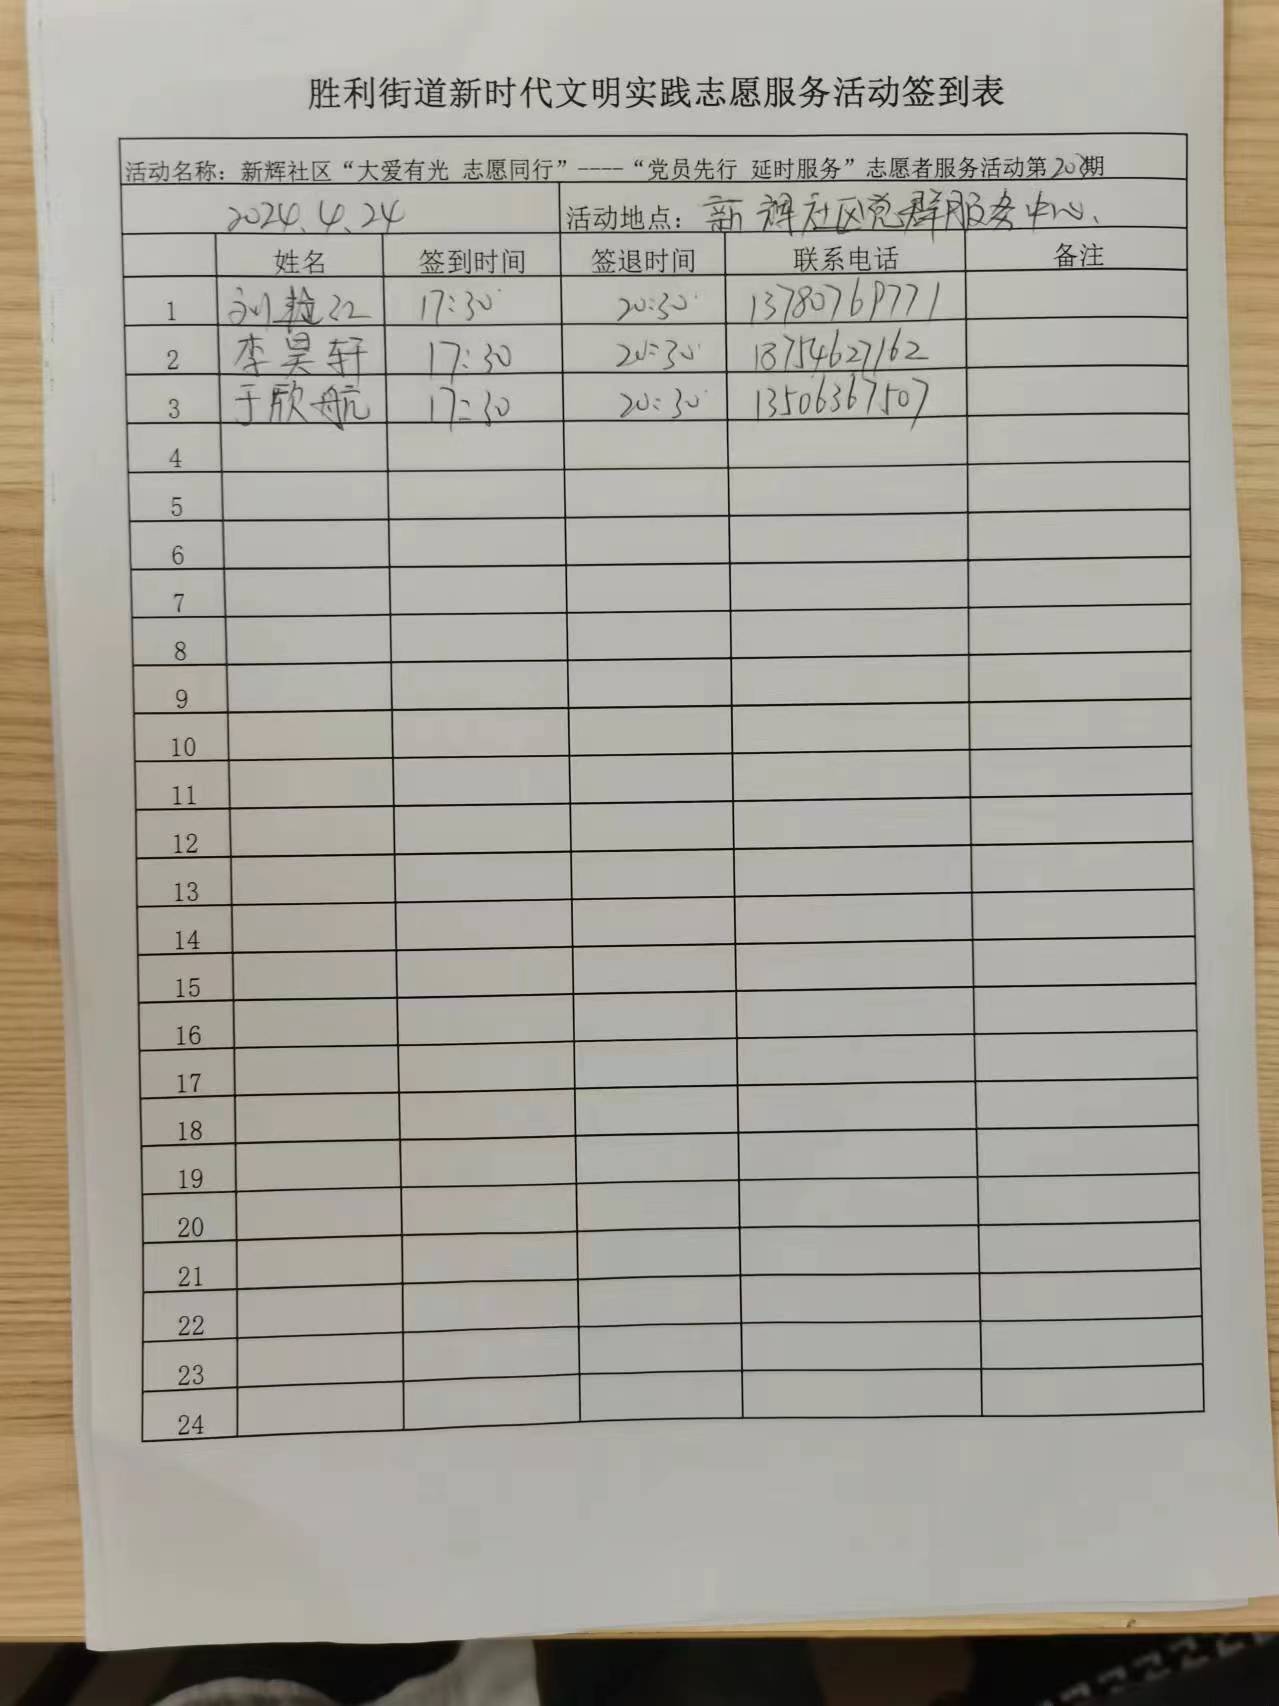 胜利街道新时代文明实践志愿服务活动签到表
活动名称：新辉社区“大爱有光 志愿同行”----“党员先行 延时服务”志愿者服务活动第203期
2024.4.24 活动地点：新辉社区党群服务中心、
姓名 签到时间 签退时间 联系电话 备注
1 刘 17:30 20:30 13780769771
2 李昊轩 17:30 20:30 18754627162
3 于欣航 17:30 20:30 13506367507
4
5
6
7
8
9
10
11
12
13
14
15
16
17
18
19
20
21
22
23
24